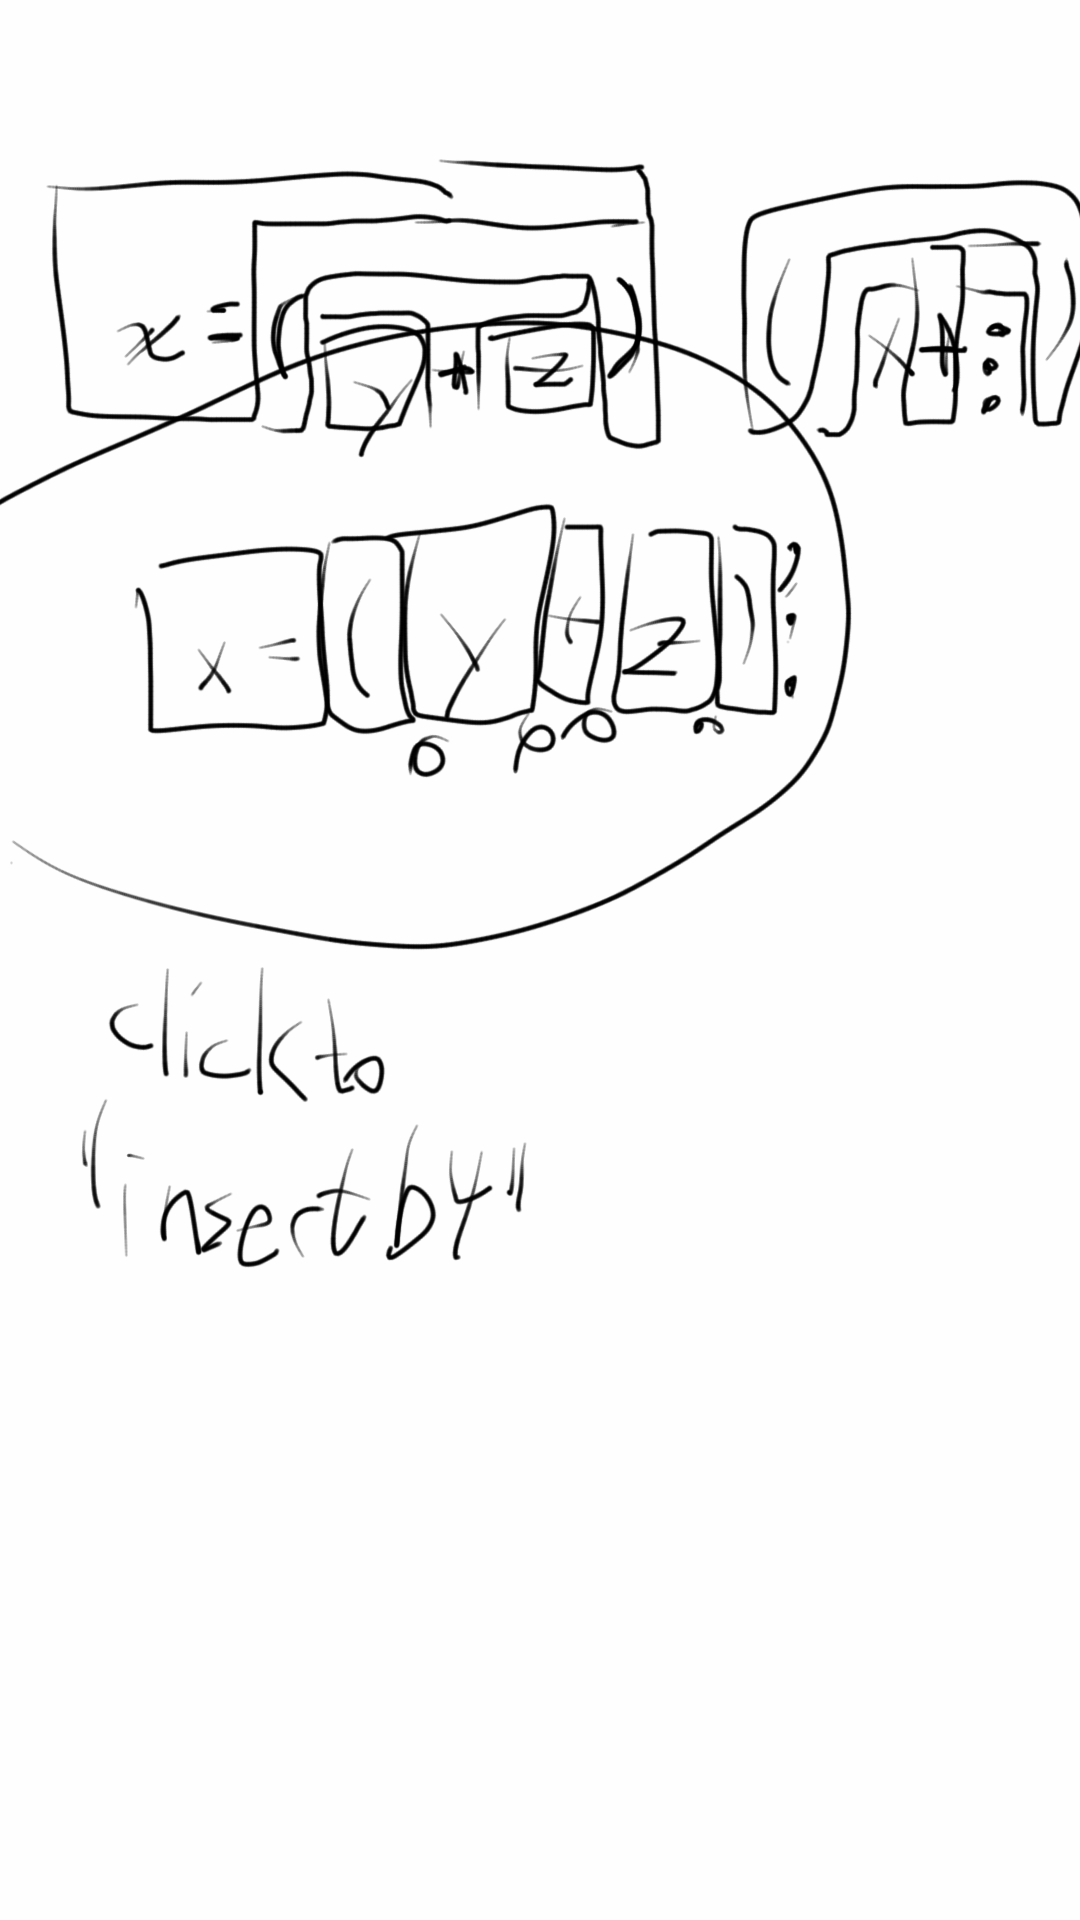 x = ( y + z ) ( x +
x = ( y + z )
click to
"insert by"